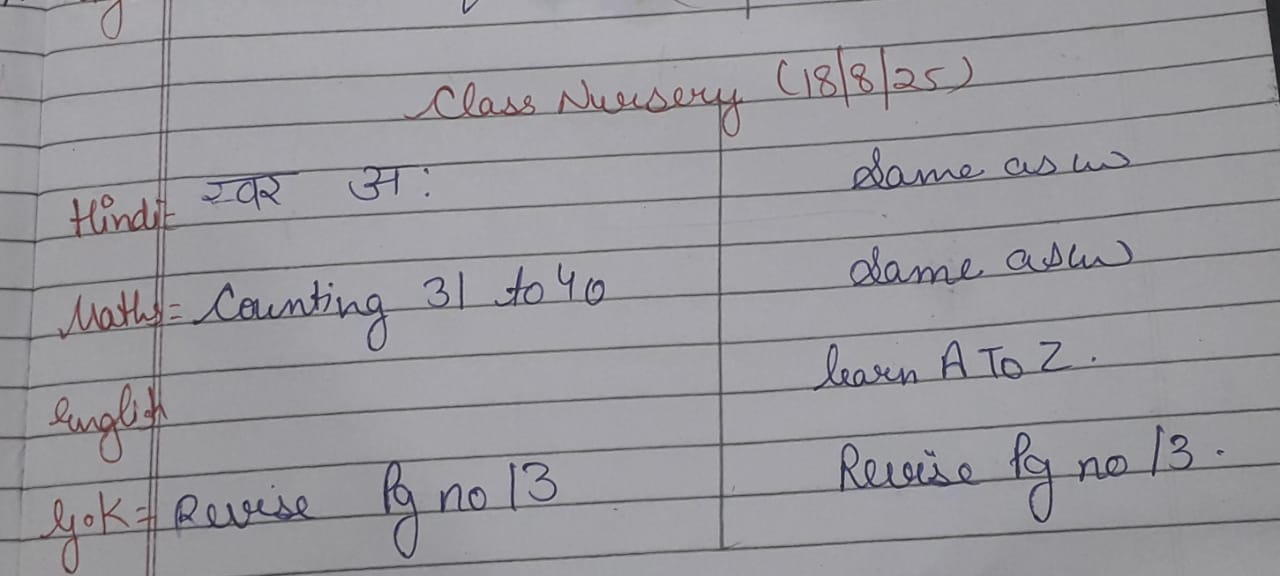 Class Nursery (18/8/25)
Hindi= स्वर अ: same as cw
Maths= Counting 31 to 40 same as cw
English learn A To Z.
G.K= Revise Pg no 13 Revise Pg no 13.